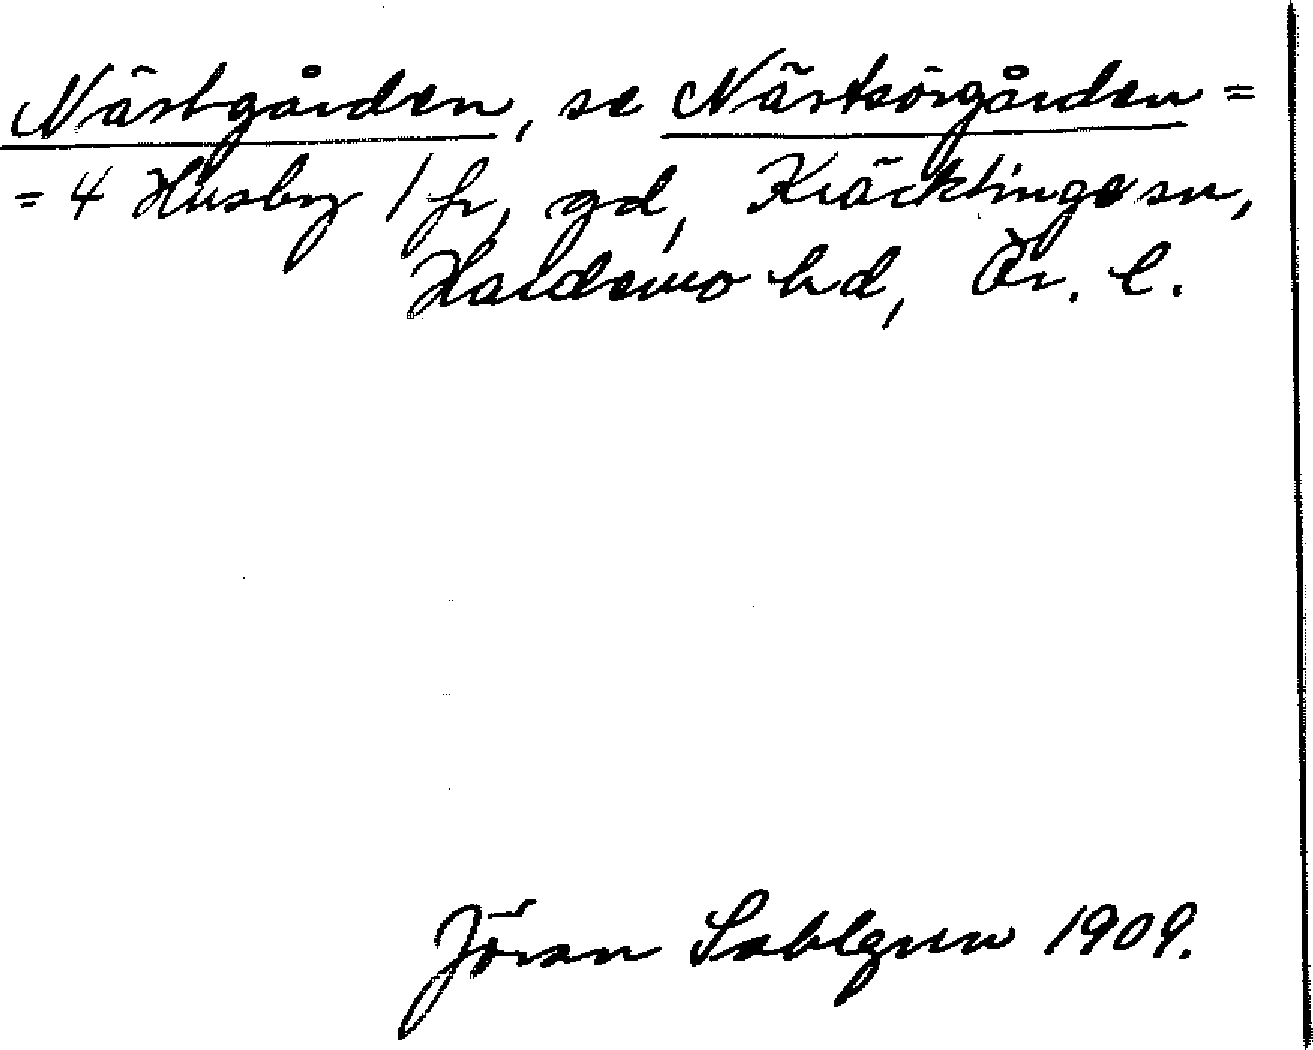 Nästgården, se Nästsörgården =
= 4 Husby 1 fr, gd, Kräcklinge sn,
Hardemo hd, Ör. l.
Jöran Sahlgren 1909.